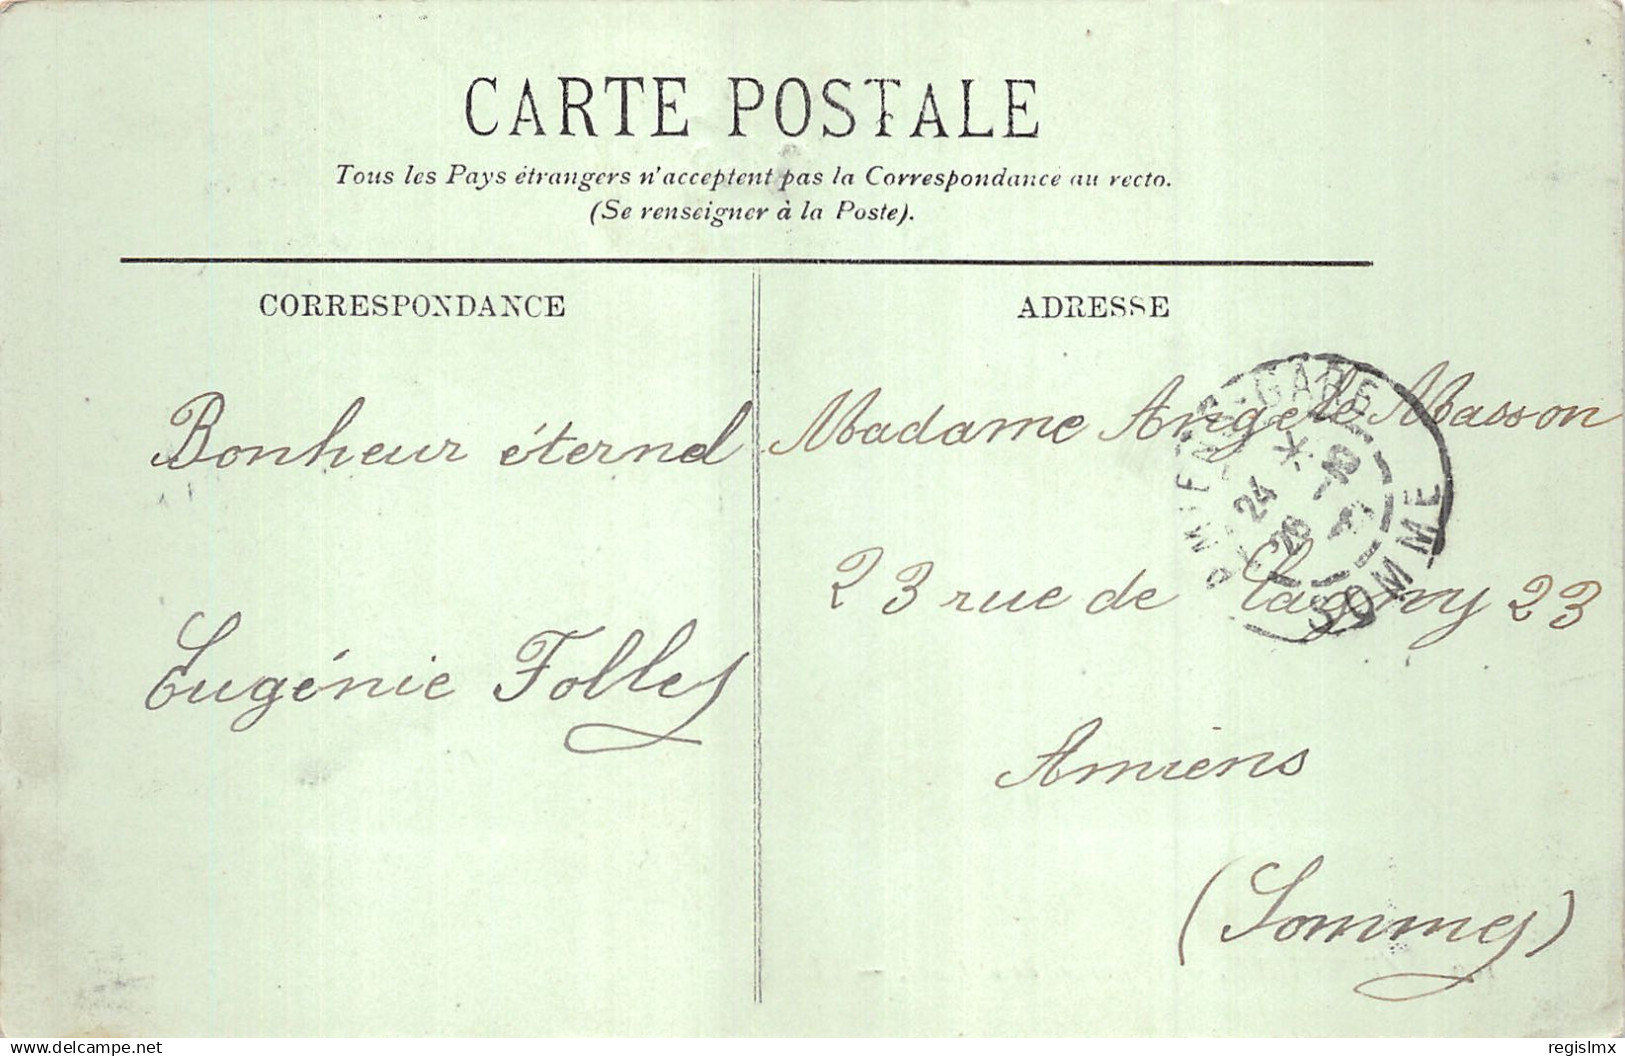 CARTE POSTALE
Tous les Pays étrangers n'acceptent pas la Correspondance au recto.
(Se renseigner à la Poste).
CORRESPONDANCE
ADRESSE
Bonheur éternel
Eugénie Folle
Madame Angèle Masson
23 rue de 23
Amiens
(Somme)
AMIENS-GARE
SOMME
24
26
delcampe.net
regislmx